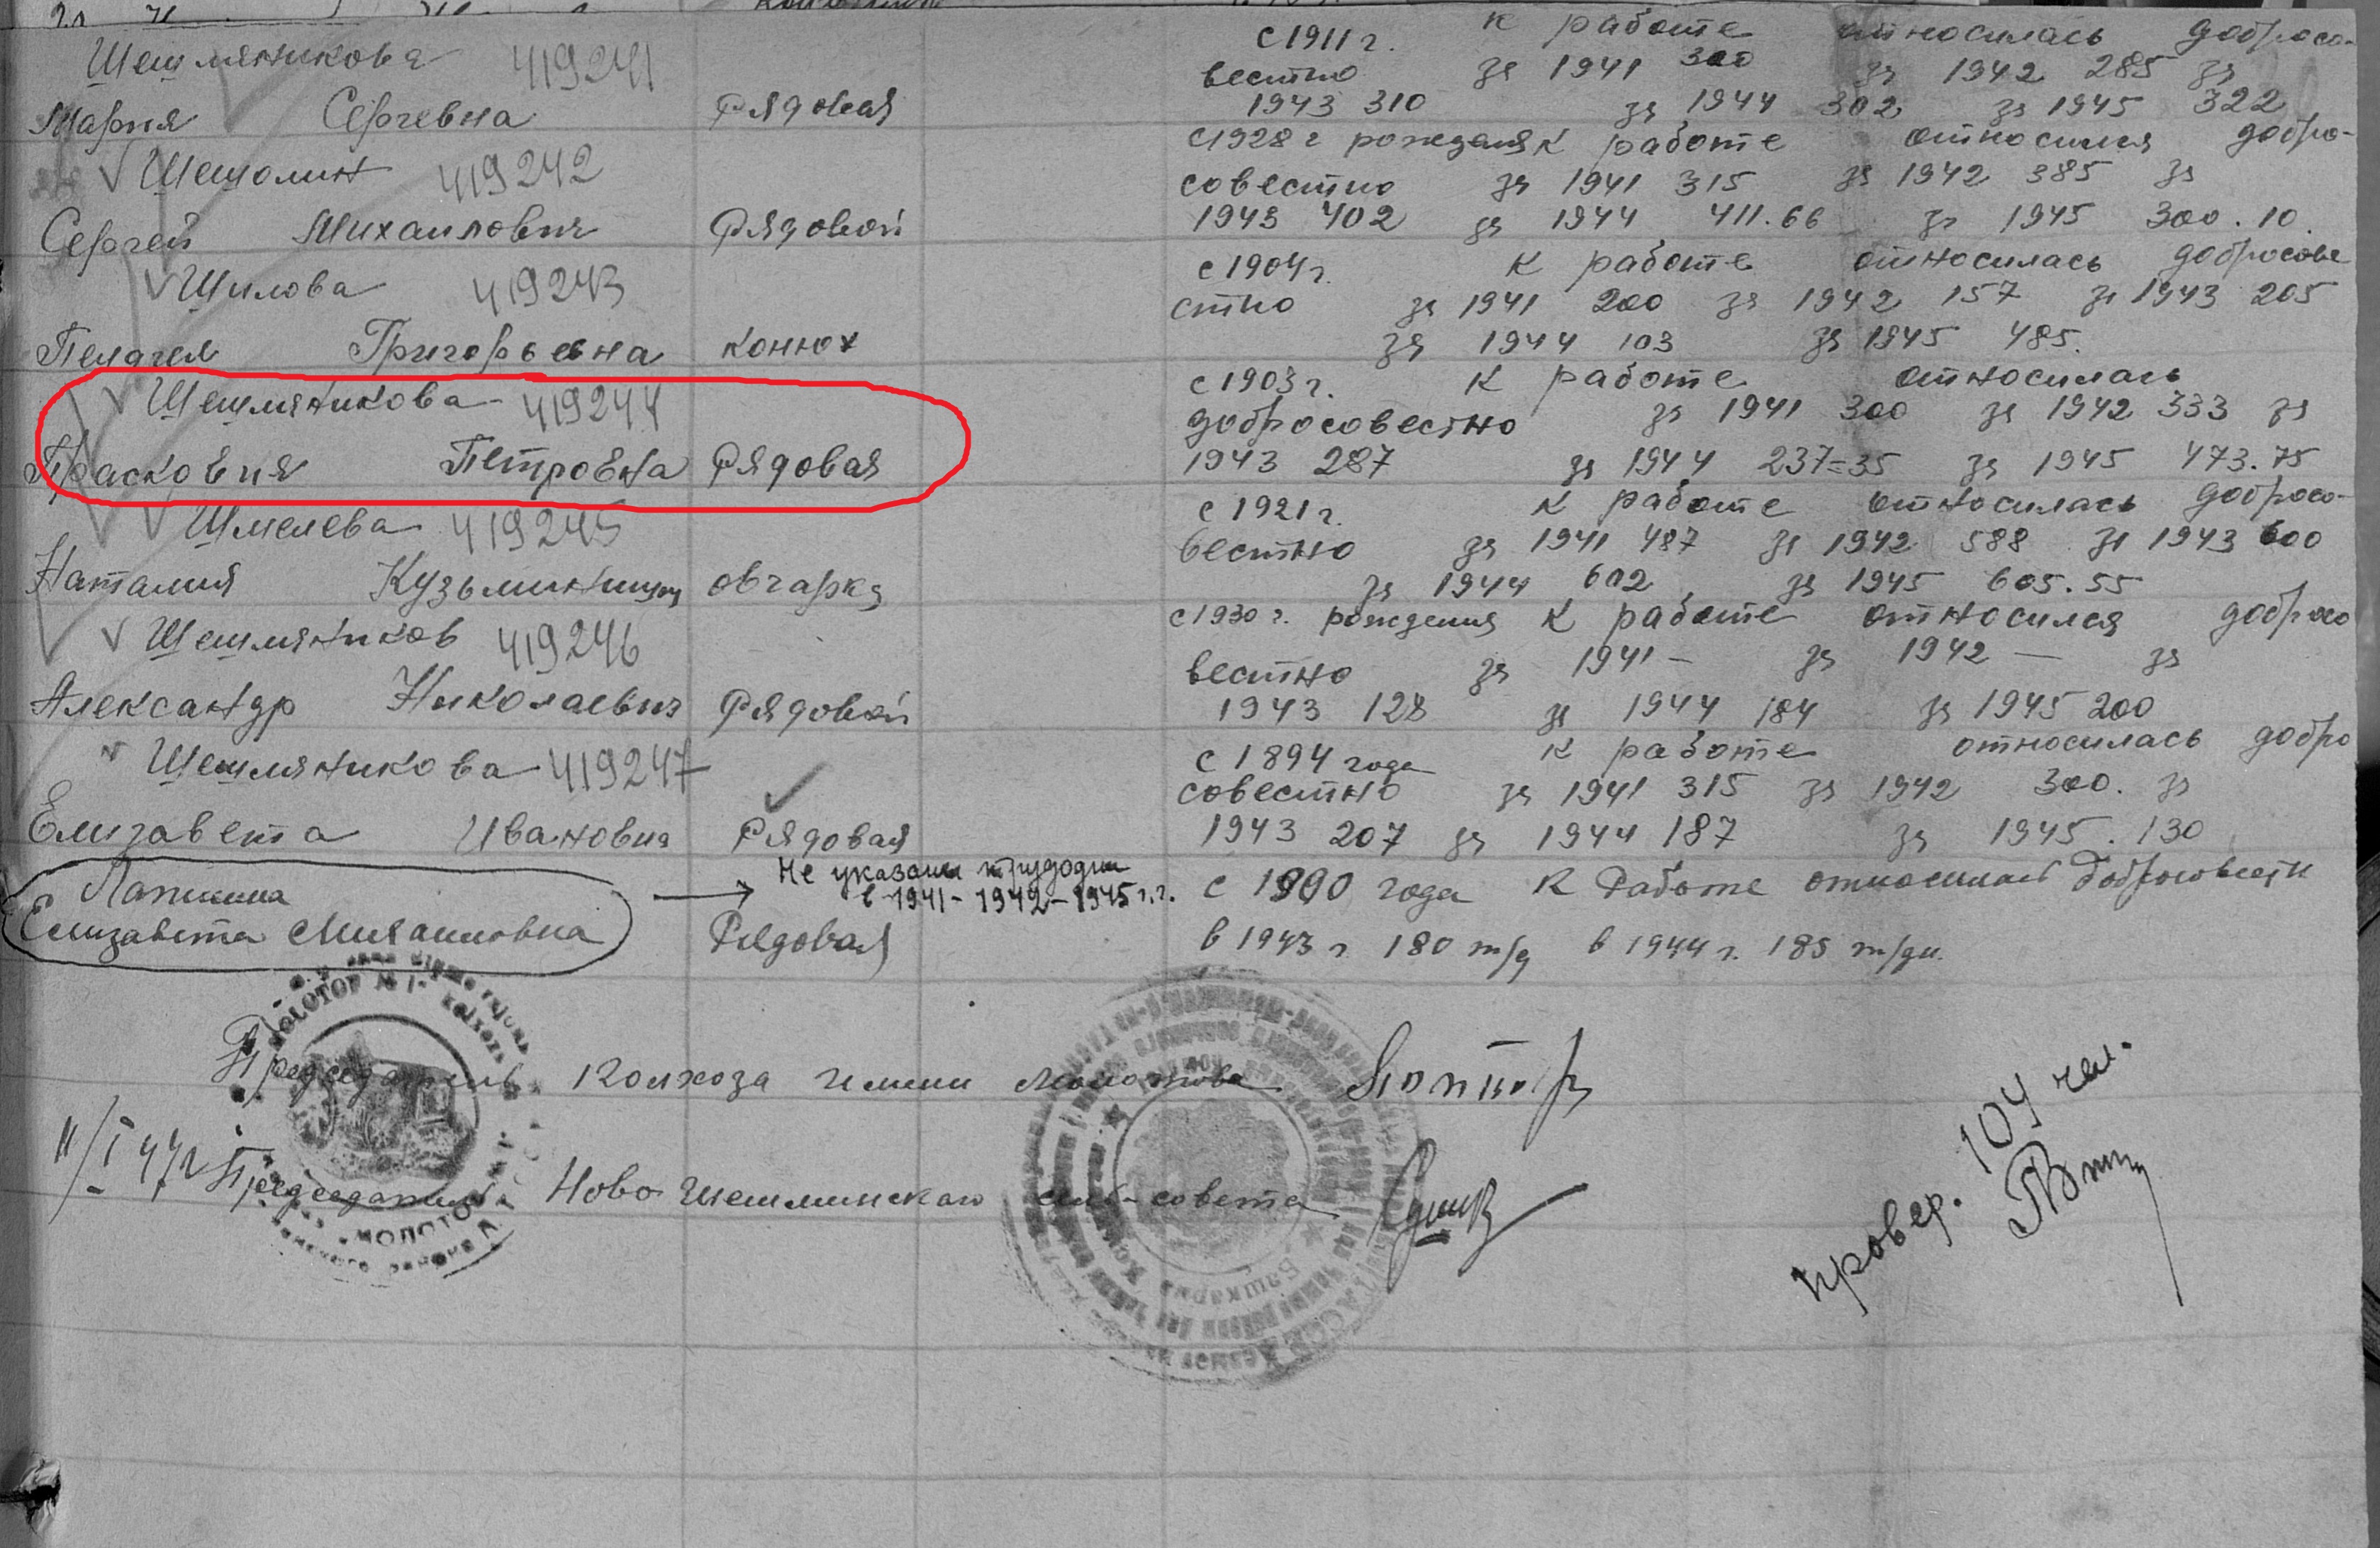 Шешмяникова 419241 с 1911 г. к работе относилась добросо-
вестно за 1941 300 за 1942 285 за
Мария Сергевна Рядовая 1943 310 за 1944 302 за 1945 322
Шешолин 419242 с 1928 г рождения к работе относился добро-
совестно за 1941 315 за 1942 385 за
Сергей Михаилович Рядовой 1943 402 за 1944 411.66 за 1945 300.10
Шилова 419243 с 1904 г. к работе относилась добросове
стно за 1941 200 за 1942 157 за 1943 205
Пелагея Григорьевна конюх за 1944 103 за 1945 485.
Шешмяникова 419244 с 1903 г. к работе относилась
добросовестно за 1941 300 за 1942 333 за
Прасковия Петровна Рядовая 1943 287 за 1944 237=35 за 1945 473.75
Шмелева 419245 с 1921 г. к работе относилась добросо-
вестно за 1941 487 за 1942 588 за 1943 600
Наталия овчарка за 1944 602 за 1945 605.55
Шешмяников 419246 с 1930 г. рождения к работе относился добросо
вестно за 1941 — за 1942 — за
Александр Николаевич Рядовой 1943 128 за 1944 184 за 1945 200
Шешмяникова 419247 с 1894 года к работе относилась добро
совестно за 1941 315 за 1942 300. за
Елизавета Ивановна Рядовая 1943 207 за 1944 187 за 1945. 130
Не указаны трудодни
в 1941 - 1942 - 1945 г.г.
Лапшина с 1900 года к работе относилась добросовестн
Елизавета Михаиловна Рядовая в 1943 г. 180 т/д в 1944 г. 185 т/дн.
MOLOTOV № 1
Председатель колхоза имени Молотова
11/I 47г Председатель Ново Шешминского сель-совета
МОЛОТОВ
провер. 104 чел.